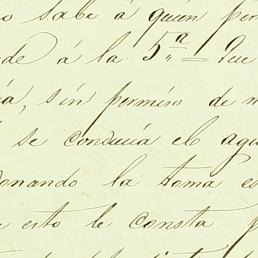 o sabe á quien per
de á la 5ª = Que
a, sin permiso de m
se conducia el agu
onando la toma es
e esto le consta p